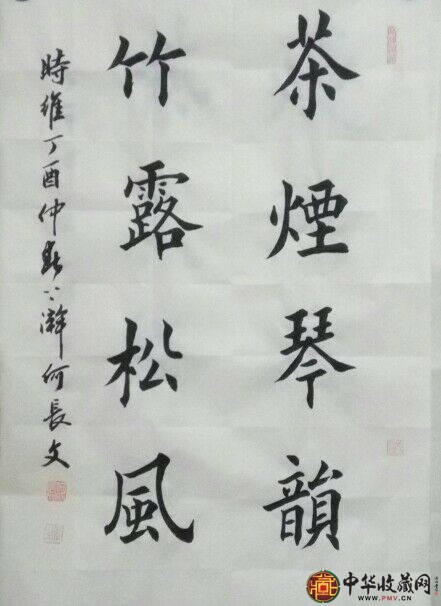 茶煙琴韻
竹露松風
時維丁酉仲春下澣何長文
中华收藏网
WWW.PMV.CN